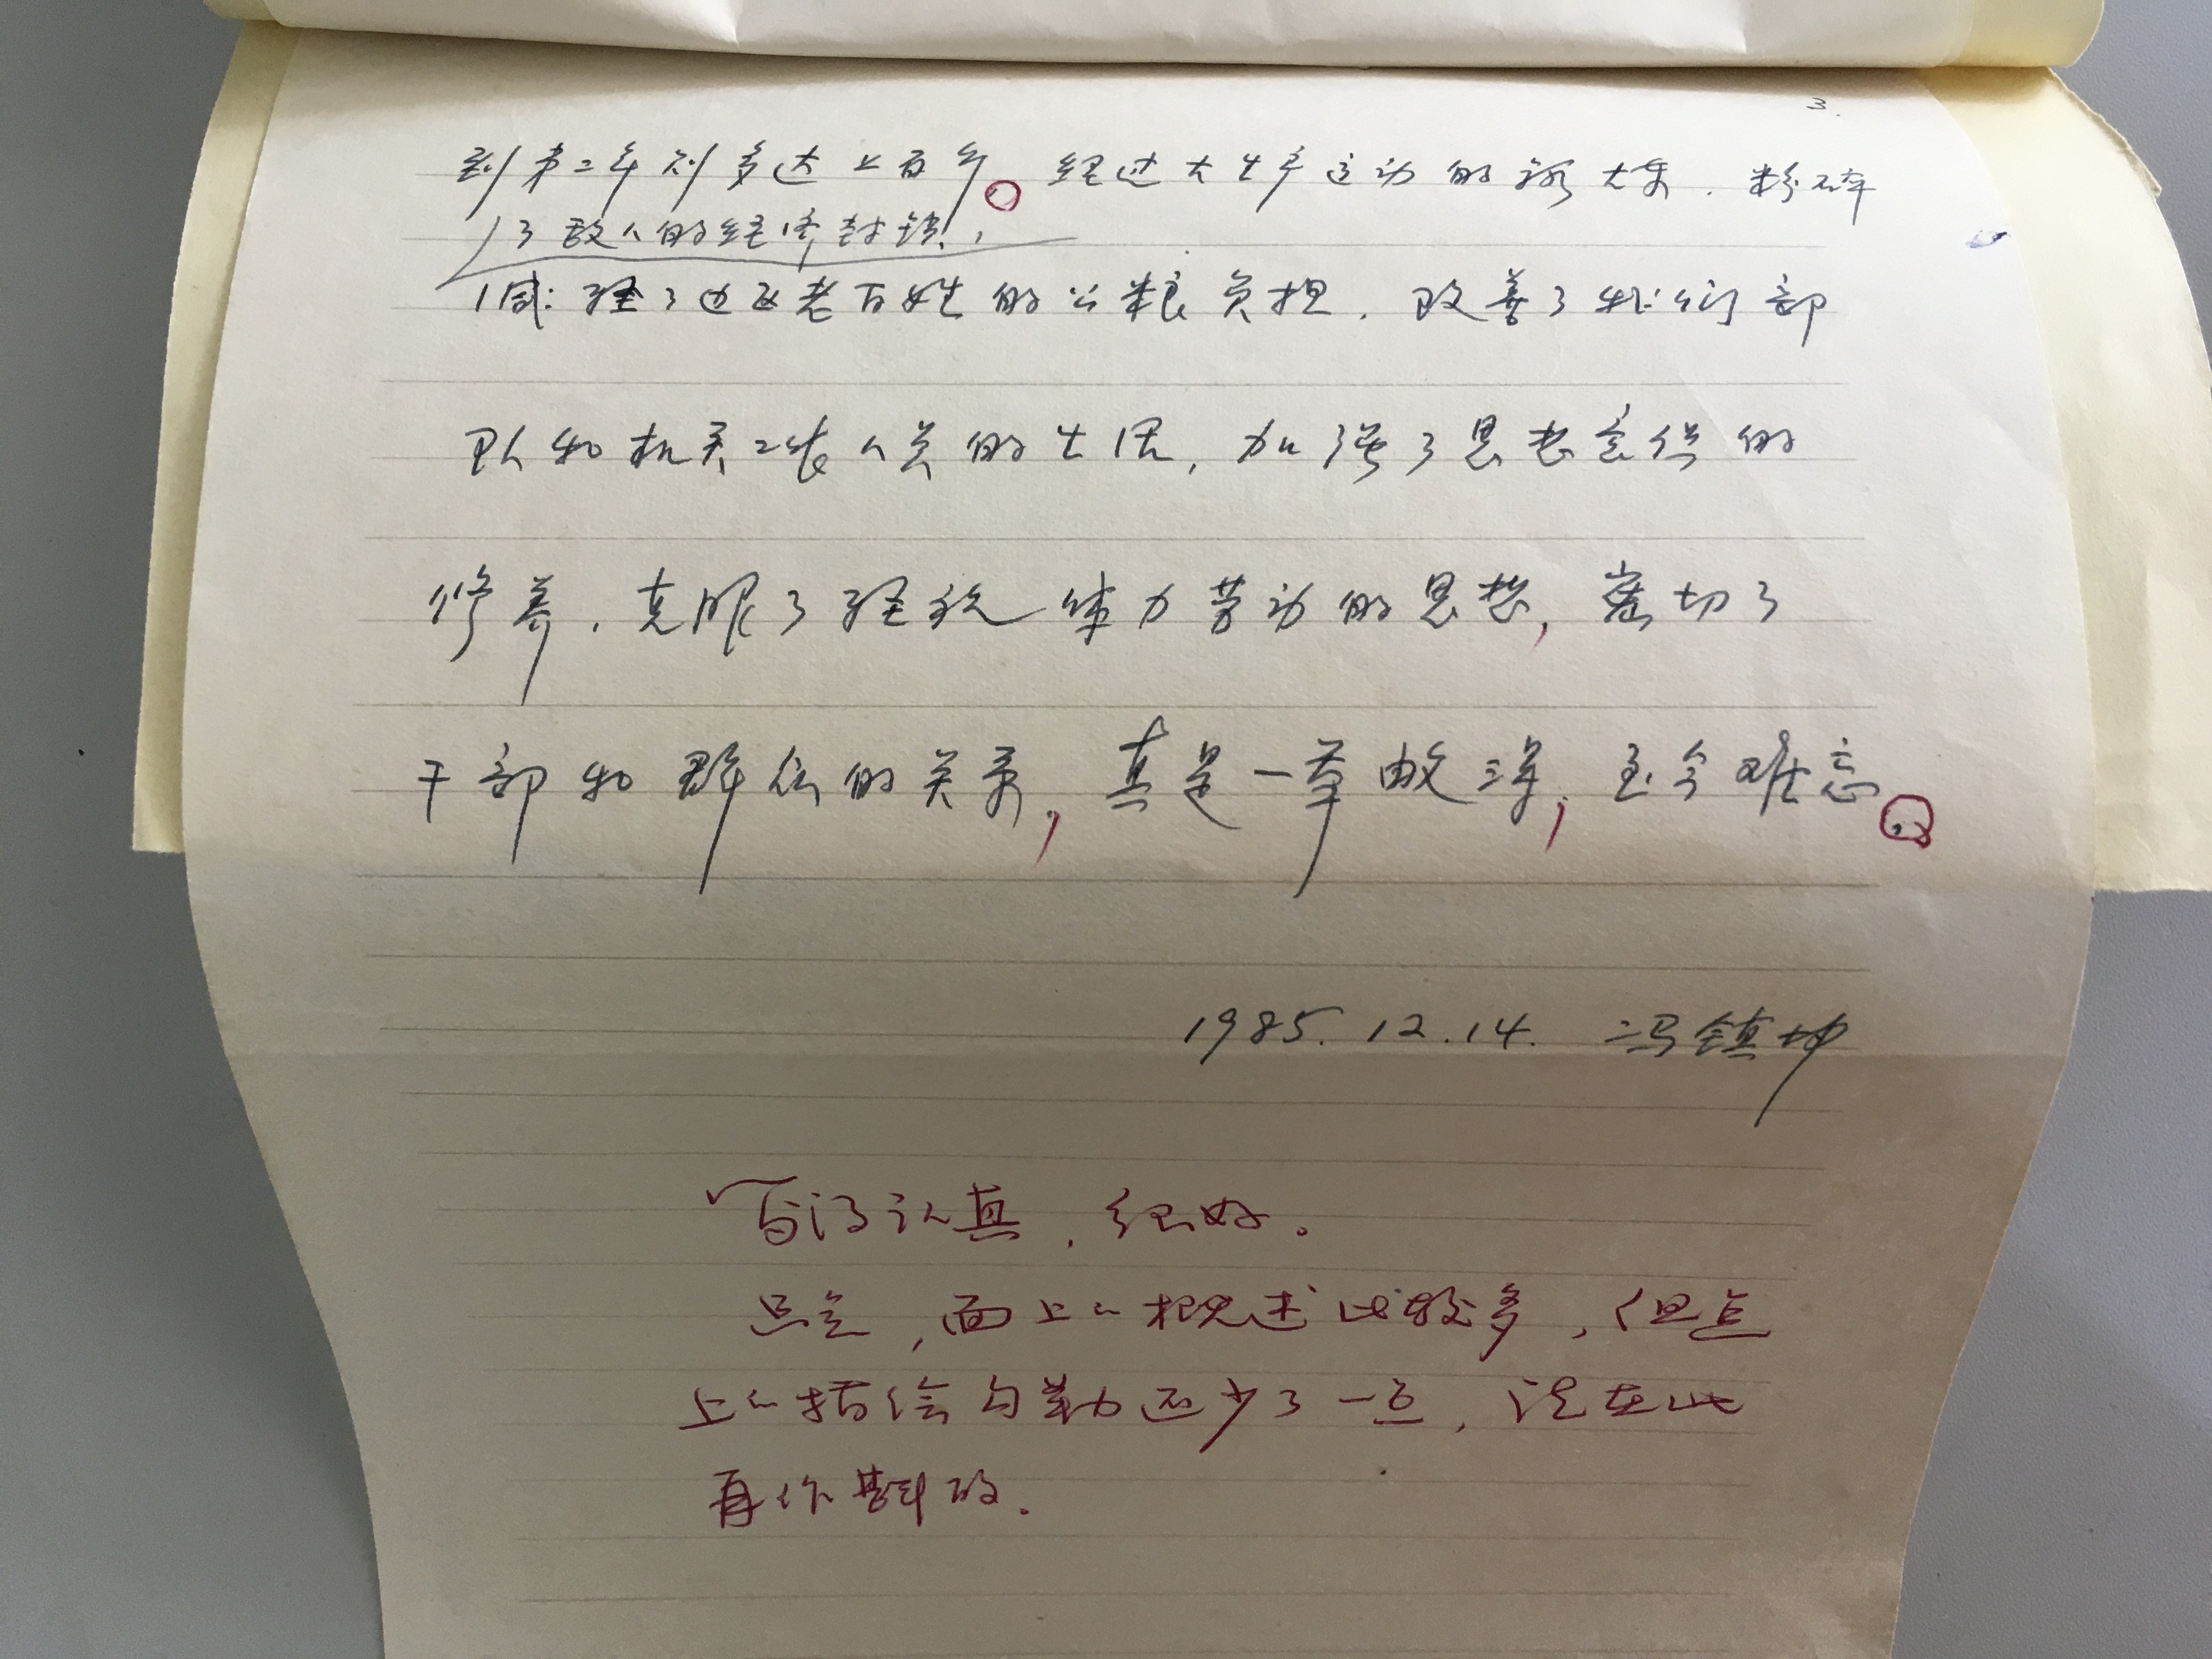 3.
到第二年则多达上百斤。经过大生产运动的锻炼,粉碎
了敌人的经济封锁,
减轻了边区老百姓的公粮负担,改善了我们部
队和机关工作人员的生活,加强了思想意识的
修养,克服了轻视体力劳动的思想,密切了
干部和群众的关系,真是一举数得,至今难忘。
1985.12.14. 冯镇坤
写得认真,很好。
只是,面上的概述比较多,但点
上的描绘勾勒还少了一点,望在此
再作斟酌.